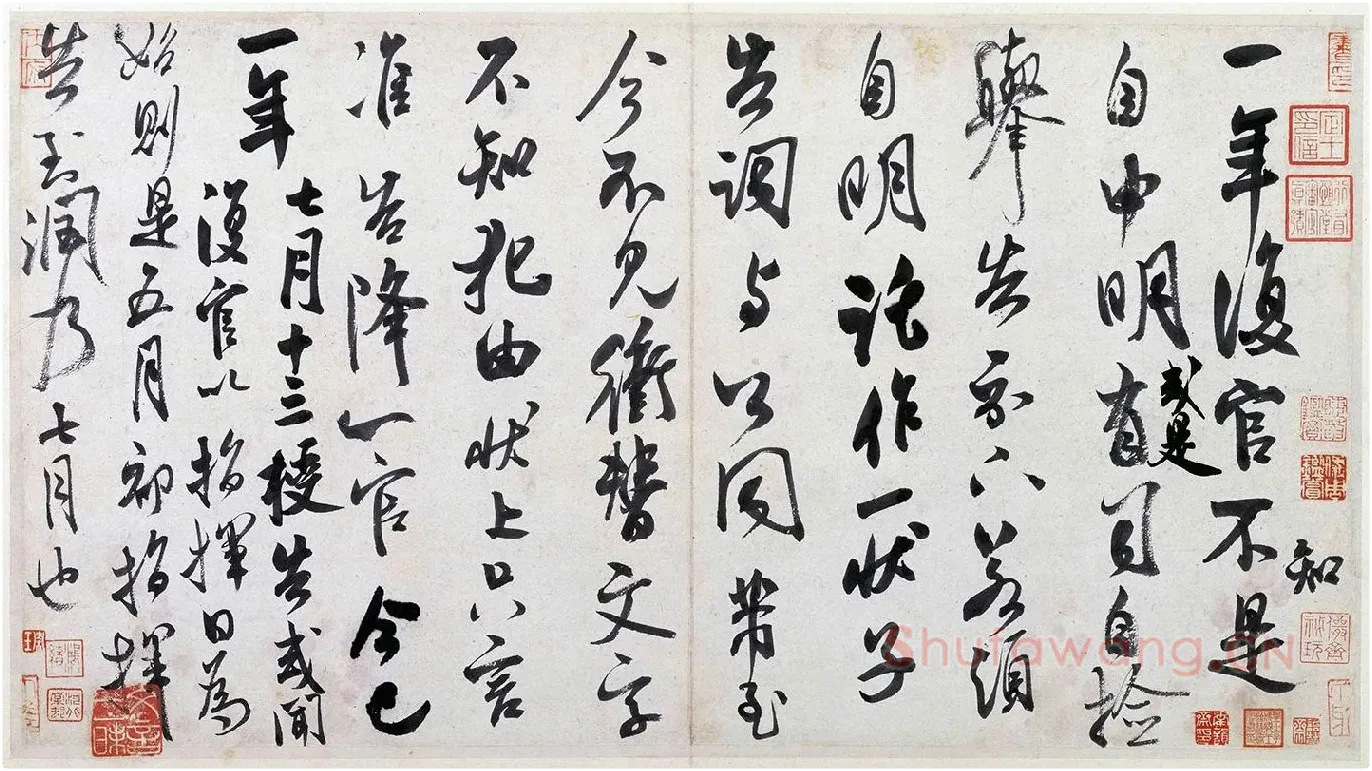 一年復官不知是
自申明或是有司自檢
舉告示下若須
自明託作一狀子
告詞与公同芾至
今不見衝替文字
不知犯由狀上只言
准告降一官今已
一年七月十三授告或聞
復官以指揮日為
始則是五月初指揮
告至潤乃七月也
Shufawang.CN